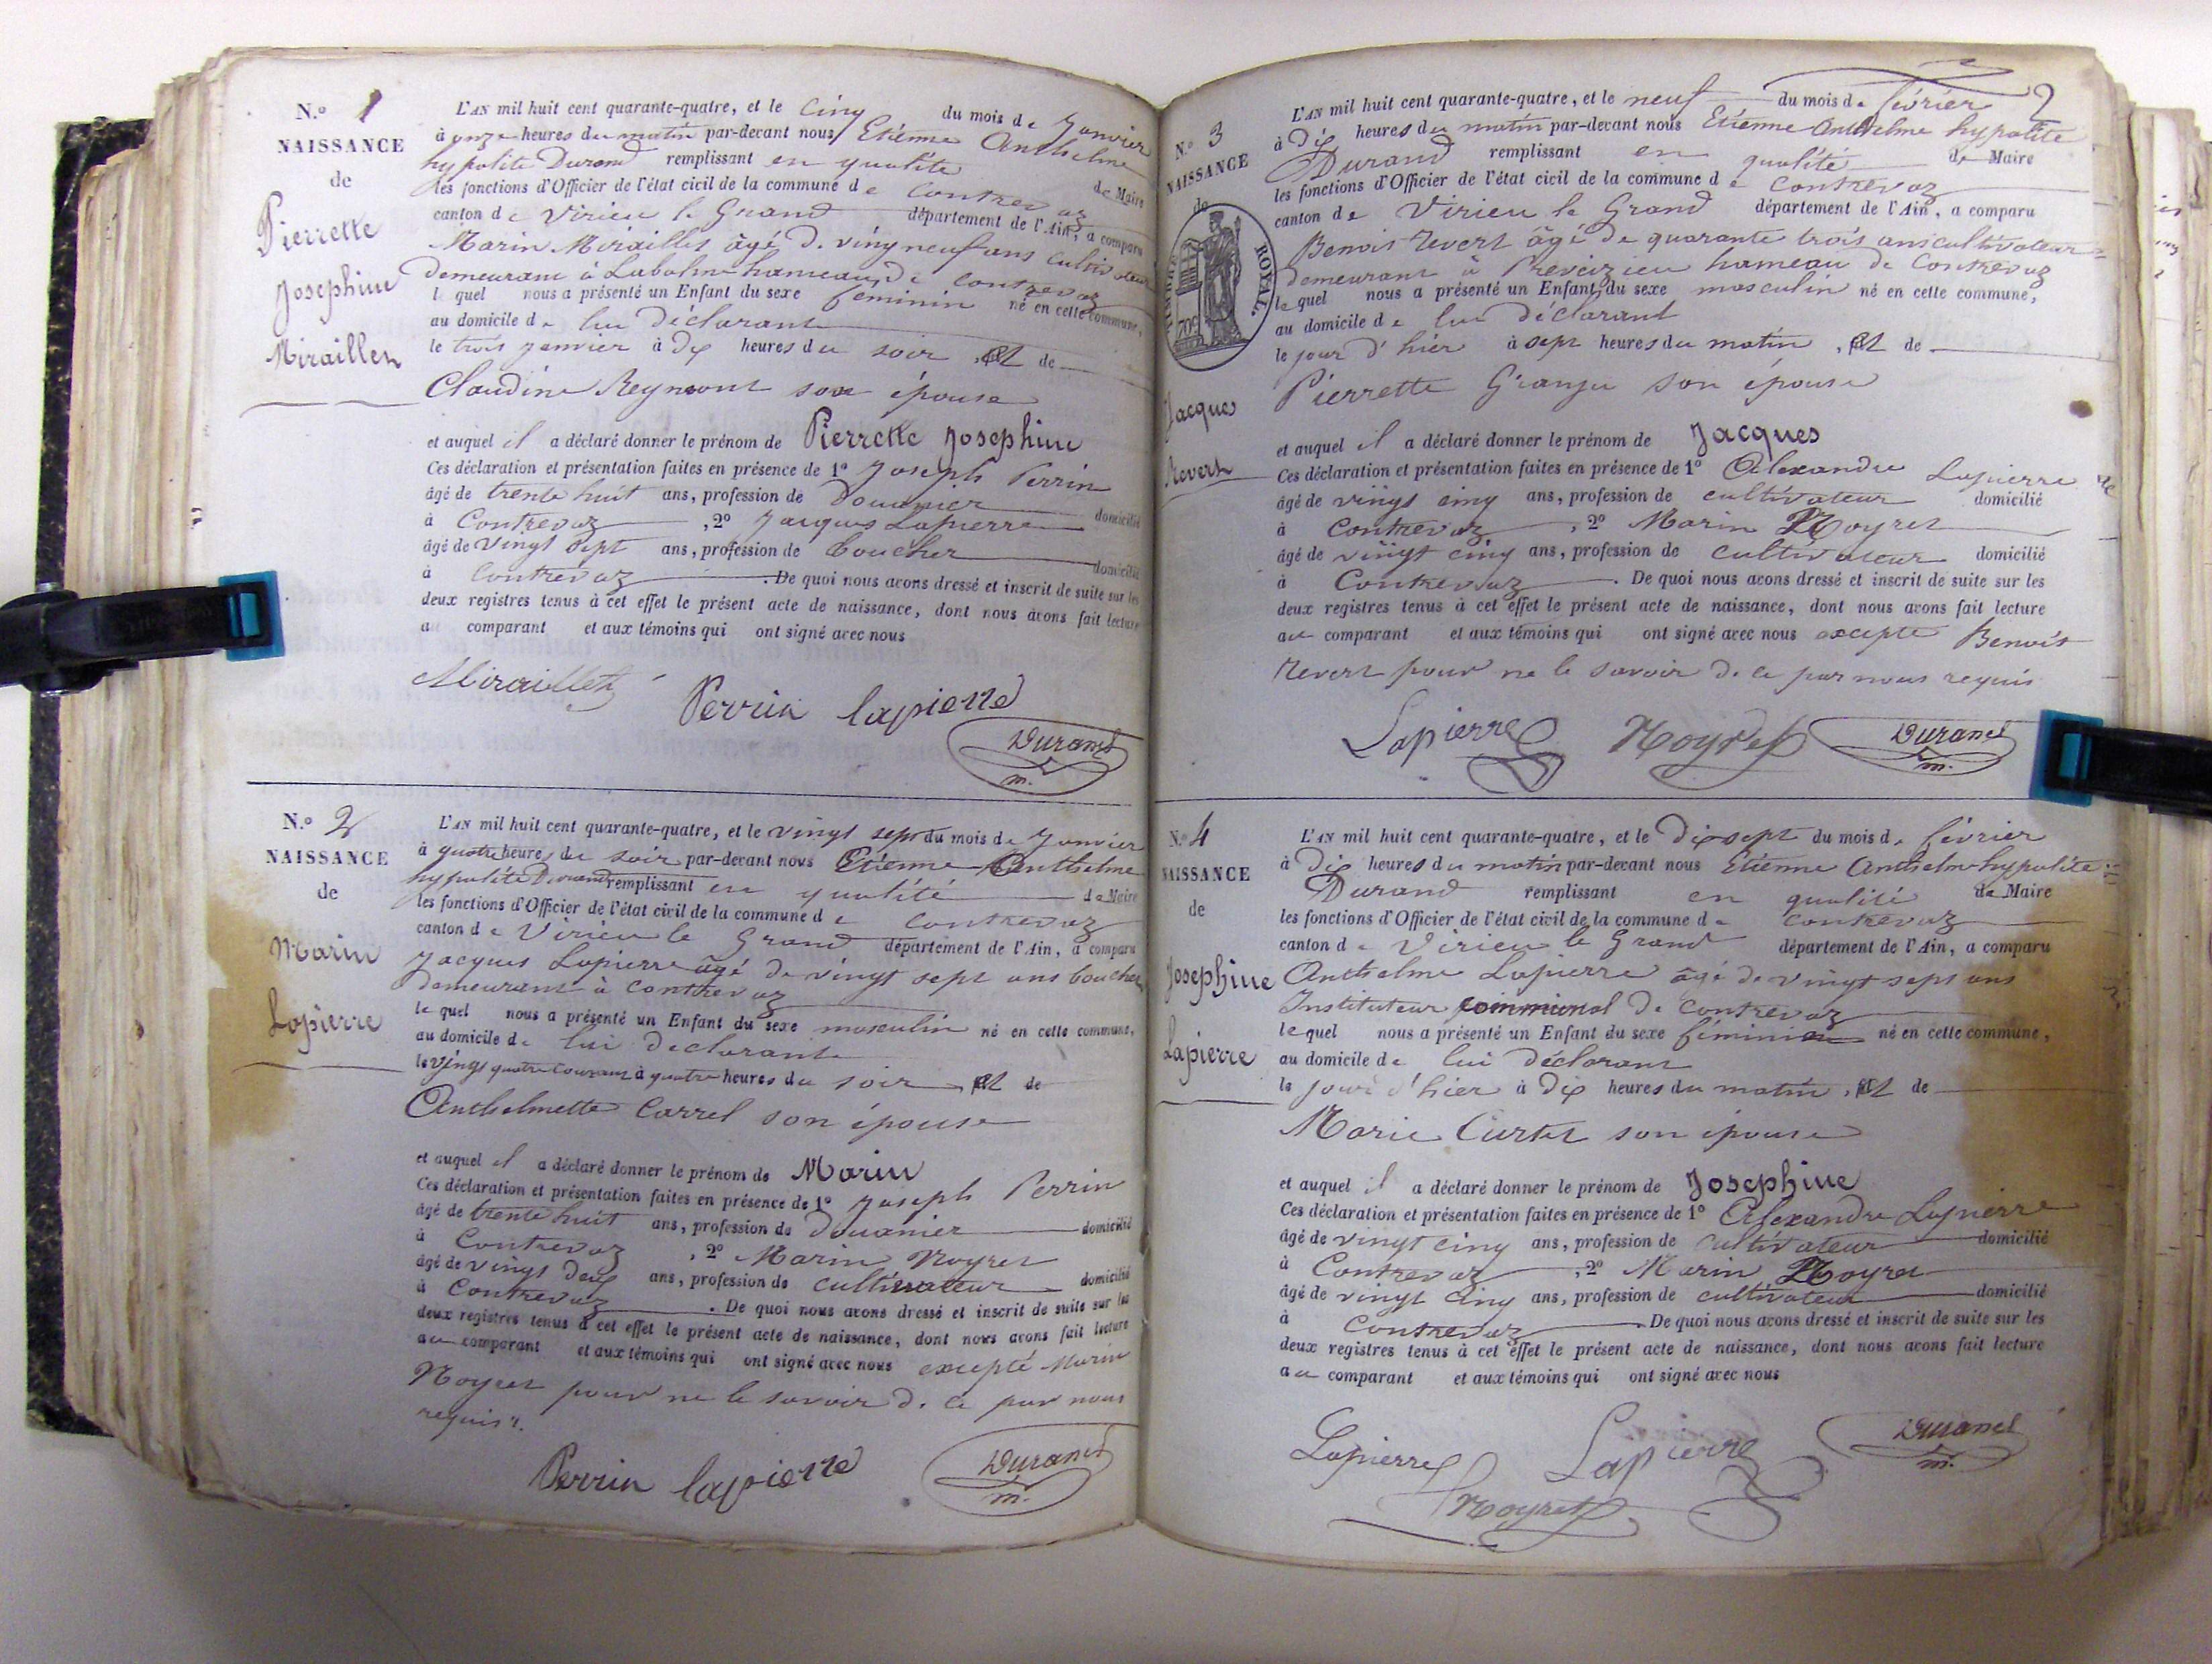 N.º 1
NAISSANCE
de
Pierrette
Josephine
Miraillet
L'AN mil huit cent quarante-quatre, et le Cinq du mois de Janvier
à onze heures du matin par-devant nous Etienne Anthelme
hypolite Durand remplissant en qualité de Maire
les fonctions d'Officier de l'état civil de la commune de Contrevoz
canton de Virieu le Grand département de l'Ain, a comparu
Marin Miraillet âgé de ving neuf ans cultivateur
demeurant à hameau de Contrevoz
le quel nous a présenté un Enfant du sexe féminin né en cette commune,
au domicile de lui déclarant
le trois janvier à dix heures du soir, et de
Claudine Reymont son épouse
et auquel il a déclaré donner le prénom de Pierrette Josephine
Ces déclaration et présentation faites en présence de 1º Joseph Perrin
âgé de trente huit ans, profession de Douanier domicilié
à Contrevoz, 2º Jacques Lapierre
âgé de vingt sept ans, profession de boucher domicilié
à Contrevoz. De quoi nous avons dressé et inscrit de suite sur les
deux registres tenus à cet effet le présent acte de naissance, dont nous avons fait lecture
au comparant et aux témoins qui ont signé avec nous
Miraillet Perrin lapierre
Durand
m.
N.º 2
NAISSANCE
de
Marin
Lapierre
L'AN mil huit cent quarante-quatre, et le vingt sept du mois de Janvier
à quatre heures du soir par-devant nous Etienne Anthelme
hypolite Durand remplissant en qualité de Maire
les fonctions d'Officier de l'état civil de la commune de Contrevoz
canton de Virieu le Grand département de l'Ain, a comparu
Jacques Lapierre âgé de vingt sept ans boucher
demeurant à Contrevoz
le quel nous a présenté un Enfant du sexe masculin né en cette commune,
au domicile de lui déclarant
le vingt quatre courant à quatre heures du soir, et de
Anthelmette Carrel son épouse
et auquel il a déclaré donner le prénom de Marin
Ces déclaration et présentation faites en présence de 1º Joseph Perrin
âgé de trente huit ans, profession de Douanier domicilié
à Contrevoz, 2º Marin Noyret
âgé de vingt deux ans, profession de cultivateur domicilié
à Contrevoz. De quoi nous avons dressé et inscrit de suite sur les
deux registres tenus à cet effet le présent acte de naissance, dont nous avons fait lecture
au comparant et aux témoins qui ont signé avec nous excepté Marin
Noyret pour ne le savoir de ce par nous
requis.
Perrin lapierre
Durand
m.
2
N.º 3
NAISSANCE
de
TIMBRE ROYAL.
70c
Jacques
Revert
L'AN mil huit cent quarante-quatre, et le neuf du mois de février
à dix heures du matin par-devant nous Etienne Anthelme hypolite
Durand remplissant en qualité de Maire
les fonctions d'Officier de l'état civil de la commune de Contrevoz
canton de Virieu le Grand département de l'Ain, a comparu
Benoit Revert âgé de quarante trois ans cultivateur
demeurant à Preveizieu hameau de Contrevoz
le quel nous a présenté un Enfant du sexe masculin né en cette commune,
au domicile de lui déclarant
le jour d'hier à sept heures du matin, et de
Pierrette Granju son épouse
et auquel il a déclaré donner le prénom de Jacques
Ces déclaration et présentation faites en présence de 1º Alexandre Lapierre
âgé de vingt cinq ans, profession de cultivateur domicilié
à Contrevoz, 2º Marin Noyret
âgé de vingt cinq ans, profession de cultivateur domicilié
à Contrevoz. De quoi nous avons dressé et inscrit de suite sur les
deux registres tenus à cet effet le présent acte de naissance, dont nous avons fait lecture
au comparant et aux témoins qui ont signé avec nous excepté Benoit
Revert pour ne le savoir de ce par nous requis
Lapierre Noyret Durand
m.
N.º 4
NAISSANCE
de
Josephine
Lapierre
L'AN mil huit cent quarante-quatre, et le dix sept du mois de février
à dix heures du matin par-devant nous Etienne Anthelme hypolite
Durand remplissant en qualité de Maire
les fonctions d'Officier de l'état civil de la commune de Contrevoz
canton de Virieu le Grand département de l'Ain, a comparu
Anthelme Lapierre âgé de vingt sept ans
Instituteur communal de Contrevoz
le quel nous a présenté un Enfant du sexe féminin né en cette commune,
au domicile de lui déclarant
le jour d'hier à dix heures du matin, et de
Marie Curtet son épouse
et auquel il a déclaré donner le prénom de Josephine
Ces déclaration et présentation faites en présence de 1º Alexandre Lapierre
âgé de vingt cinq ans, profession de cultivateur domicilié
à Contrevoz, 2º Marin Noyret
âgé de vingt cinq ans, profession de cultivateur domicilié
à Contrevoz. De quoi nous avons dressé et inscrit de suite sur les
deux registres tenus à cet effet le présent acte de naissance, dont nous avons fait lecture
au comparant et aux témoins qui ont signé avec nous
Lapierre Lapierre Durand
m.
Noyret